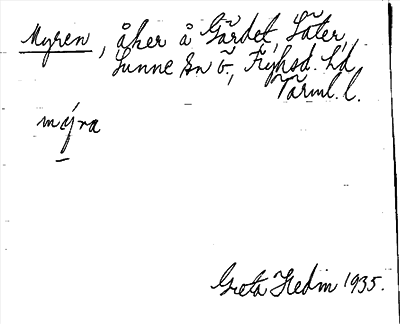 Myren, åker å Gärdet, Säter,
Sunne sn ö., Fryksd. hd
Värml. l.
mýra
Greta Hedin 1935.